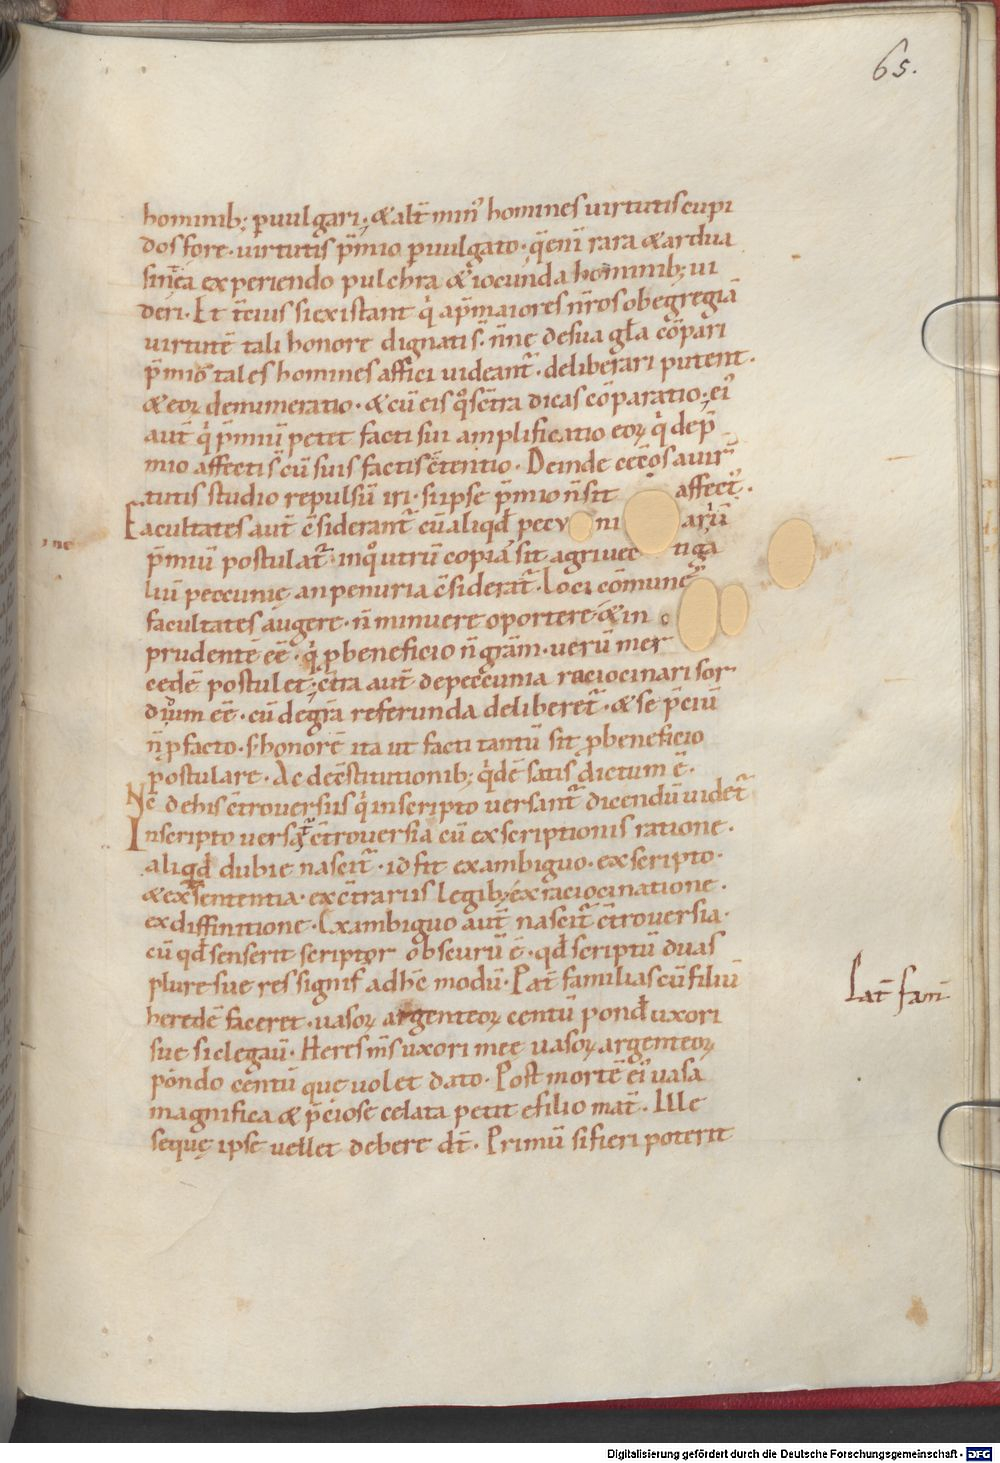 65.
hominib; puulgari; & alt̄ min᾿ homines uirtutis cupi
dos fore· uirtutis p̄mio puulgato· q̄ enī rara & ardua
sint ea experiendo pulchra & iocunda hominib; ui
deri· Et
si existant q̇ ap̄ maiores nr̄os ob egregiā
uirtutē tali honore dignati s̄· n̄ne de sua gl̄a cōpari
p̄miō tales homines affici uideant̄· deliberari putent·
& eoꝝ denumeratio· & cū eis qͦs c̄tra dicas cōparatio; ei᾿
aut̄ q̇ p̄miū petet facti sui amplificatio eoꝝ q̇ de p̄
mio affecti s̄ cū suis factis c̄tentio· Deinde ceteros a uir
tutis studio repulsū iri· si ipse p̄mio n̄ sit affect᾿·
Facultates aut̄ c̄siderant̄ cū aliqd̄ pecu ni arıū
p̄miū postulat̄· in qͦ utrū copia sit agri uec tiga
liū peccunię an penuria c̄siderat̄· Loci cōmunes
facultates augere· n̄ minuere oportere & in
prudentē eē· q̇ p beneficio n̄ grām· uerū mer
cedē postulet; c̄tra aut̄ de peccunia raciocinari sor
didum eē· cū de grā referunda deliberet̄· & se p̄ciū
n̄ p facto· s; honorē ita ut facti tantū sit p beneficio
postulare· Ac de c̄stitutionib; qdē satis dictum ē·
Nc̄ de his c̄trouersiis q̇ in scripto uersant̄ dicendū uidet̄
In scripto uersat̄ c̄trouersia cū ex scriptionis ratione·
aliqd̄ dubie nascit̄· id fit ex ambiguo· ex scripto·
& ex sententia· ex c̄trariis legib; ex raciocinatione·
ex diffinitione· Ex ambiguo aut̄ nascit̄ c̄trouersia·
cū qd̄ senserit scriptor obscurū ē· qd̄ scriptū duas
pluresue res signif ad hc̄ modū· Pat̄ familias cū filiū
heredē faceret· uasoꝝ argenteoꝝ centū pond̄ uxori
sue sic legau̅· Heres m̄s uxori mee uasoꝝ argenteoꝝ
pondo centū quę uolet dato· Post mortē ei᾿ uasa
magnifica & p̄ciose celata petit e filio mat̄· Ille
se quę ipse uellet debere dt̄· Primū si fieri poterit
Pat̄ fam̄
Digitalisierung gefördert durch die Deutsche Forschungsgemeinschaft - DFG